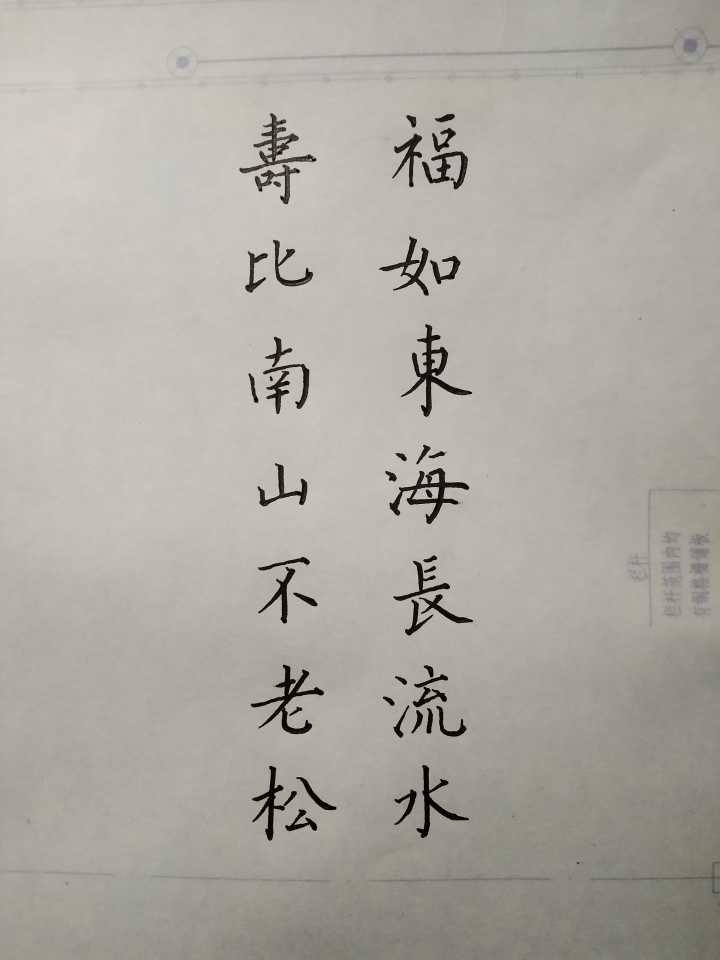 福如東海長流水
壽比南山不老松
栏杆